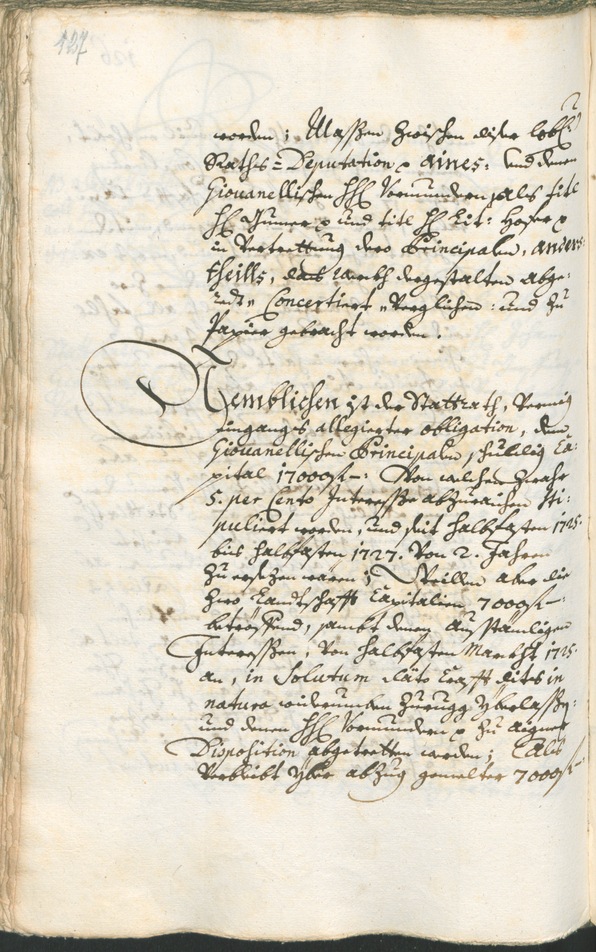 127
worden; Massen zwischen diser lobl:
Raths-Deputation p aines: und denen
Giouanellischen HH Vormundern, als titl
HH p und titl HH Lit: Hofer p
in Vertrettung dero Principalen, anders-
theills, das werkh dergestalten abge-
redt, Concertiert, verglichen: und zu
Papier gebracht worden.
Nemblichen ist der Stattrath, Vermög
eingangs allegierter obligation, denen
Giouanellischen Principalen, schuldig Ca-
pital 17000 f –: Von welchem zwahr
5. per Cento Interesse abzuraichen sti-
puliert worden, und seit halbfasten 1725.
bis halbfasten 1727. Von 2. Jahren
zu ersezen wären; Weillen aber die
zwo Landtschafft Capitalien 7000 f –:
betreffend, sambt denen ausständigen
Interessen, Von halbfasten Markht 1725.
an, in Solutum dato Crafft dits in
natura widerumben zurugg yberlassen,
und denen HH Vormundern p zu aigner
Disposition abgetretten werden; Als
Verbleibt yber abzug gemelter 7000 f –: